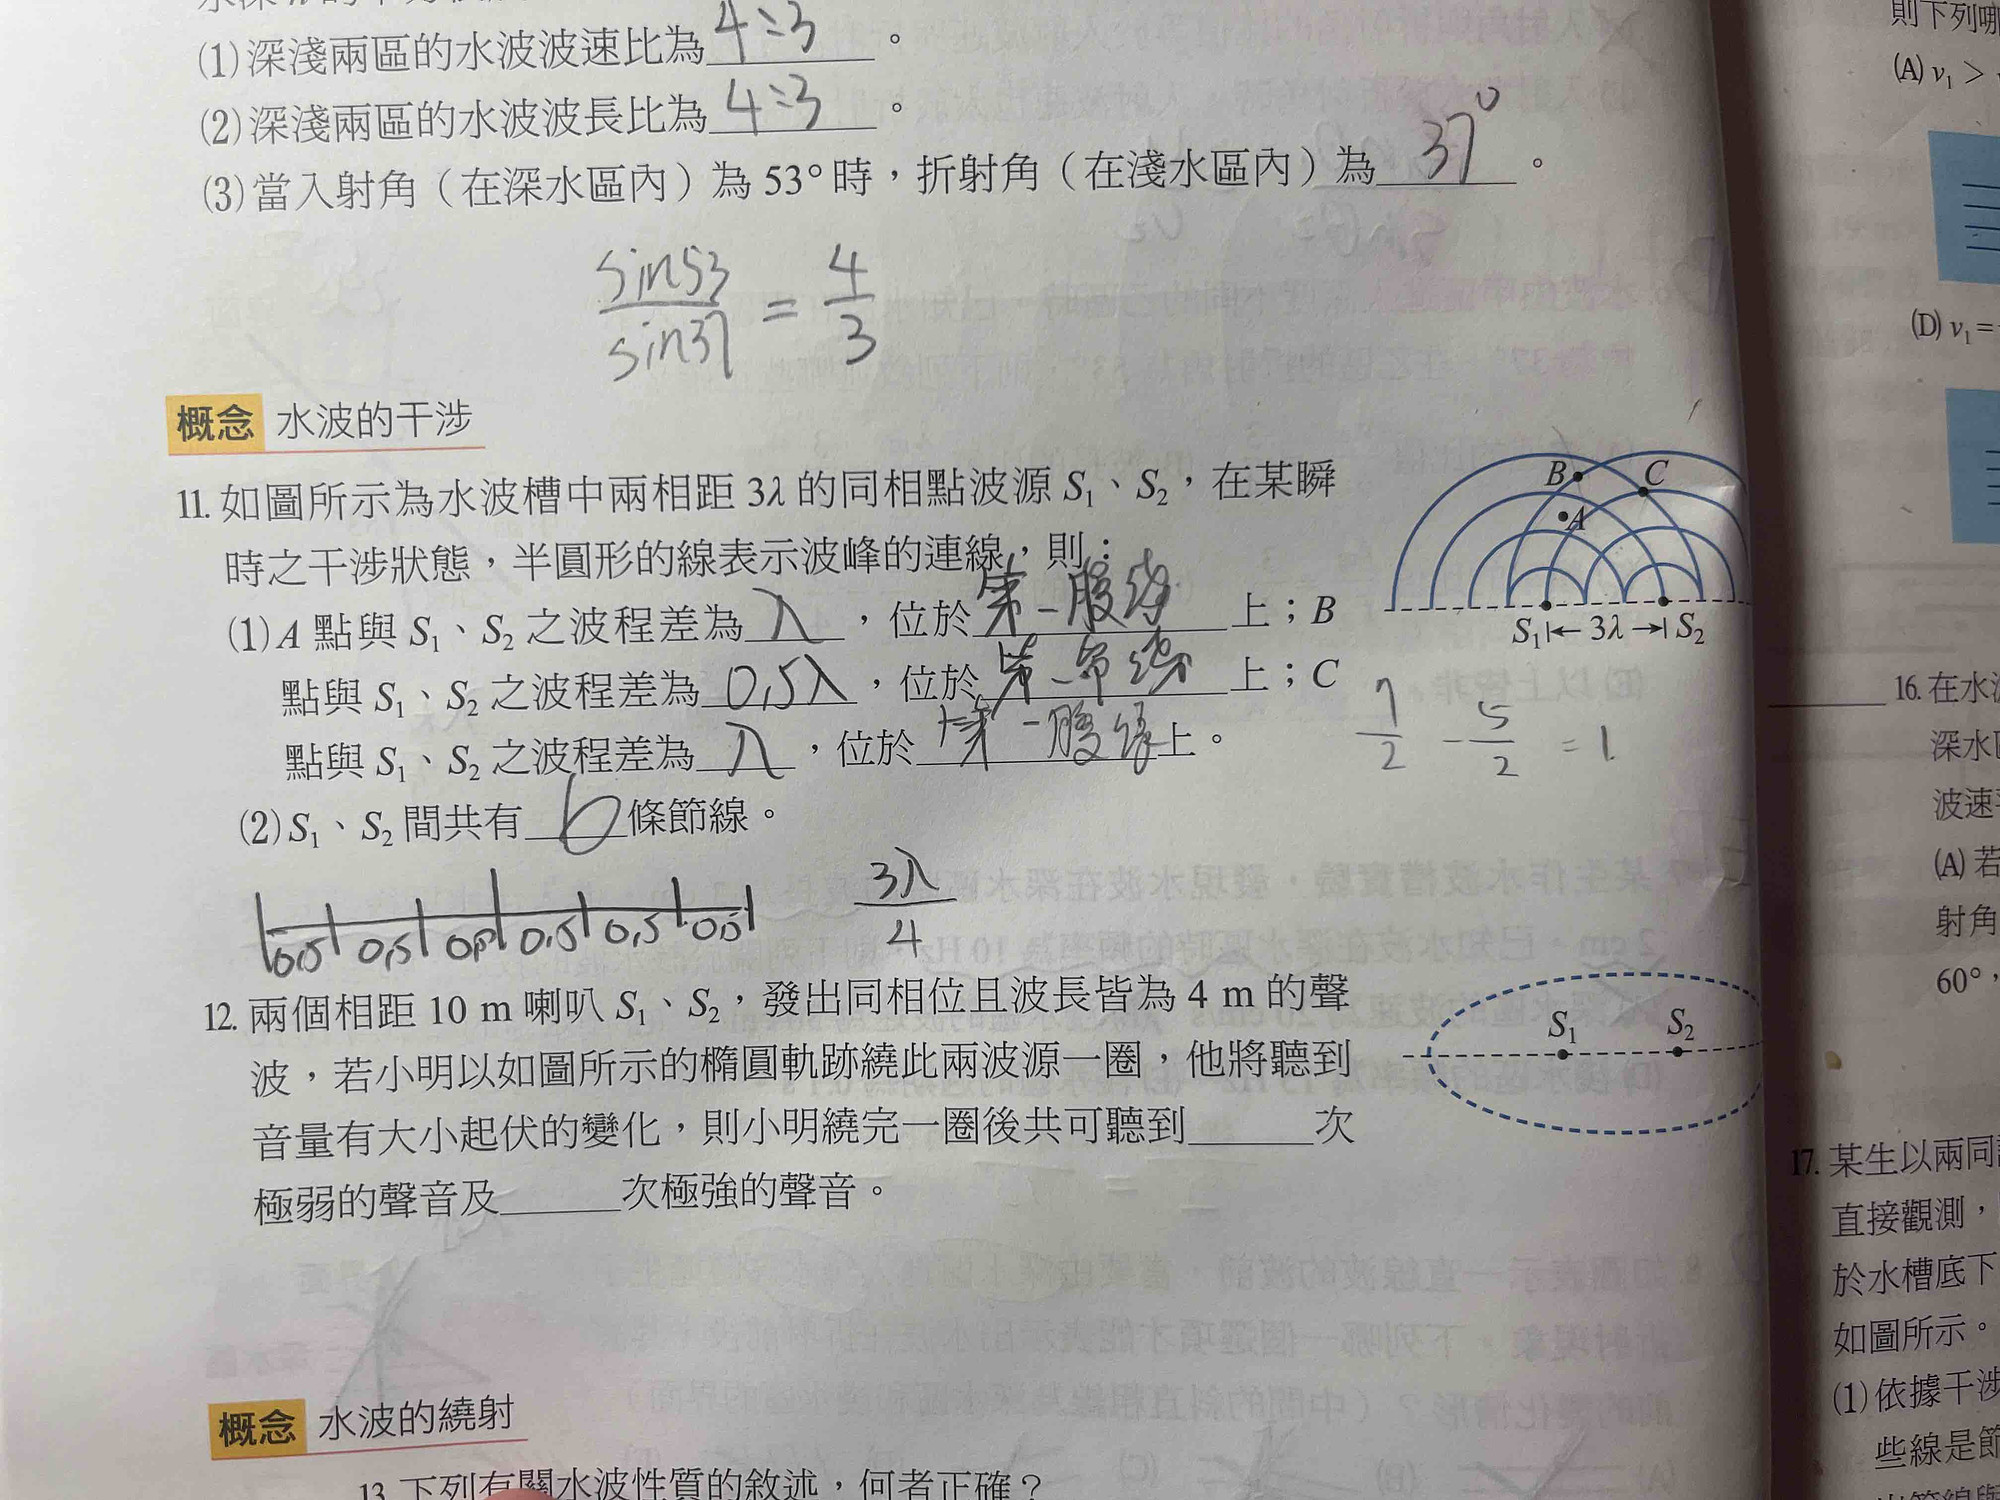 (1)深淺兩區的水波波速比為 4:3 。
(2)深淺兩區的水波波長比為 4:3 。
(3)當入射角（在深水區內）為 53° 時，折射角（在淺水區內）為 37° 。
sin53
sin37
=
4
3
概念 水波的干涉
11. 如圖所示為水波槽中兩相距 3λ 的同相點波源 S₁、S₂，在某瞬
時之干涉狀態，半圓形的線表示波峰的連線，則：
(1) A 點與 S₁、S₂ 之波程差為 λ ，位於 第一腹線 上；B
點與 S₁、S₂ 之波程差為 0.5λ ，位於 第一節線 上；C
點與 S₁、S₂ 之波程差為 λ ，位於 第一腹線 上。
(2) S₁、S₂ 間共有 6 條節線。
B
C
A
S₁ |← 3λ →| S₂
7/2 - 5/2 = 1
0.5 0.5 0.5 0.5 0.5 0.5
3λ
4
12. 兩個相距 10 m 喇叭 S₁、S₂，發出同相位且波長皆為 4 m 的聲
波，若小明以如圖所示的橢圓軌跡繞此兩波源一圈，他將聽到
音量有大小起伏的變化，則小明繞完一圈後共可聽到______次
極弱的聲音及______次極強的聲音。
S₁ S₂
概念 水波的繞射
13. 下列有關水波性質的敘述，何者正確？
則下列哪
(A) v₁ >
(D) v₁ =
16. 在水
深水
波速
(A) 若
射角
60°，
17. 某生以兩同
直接觀測，
於水槽底下
如圖所示。
(1) 依據干涉
些線是節